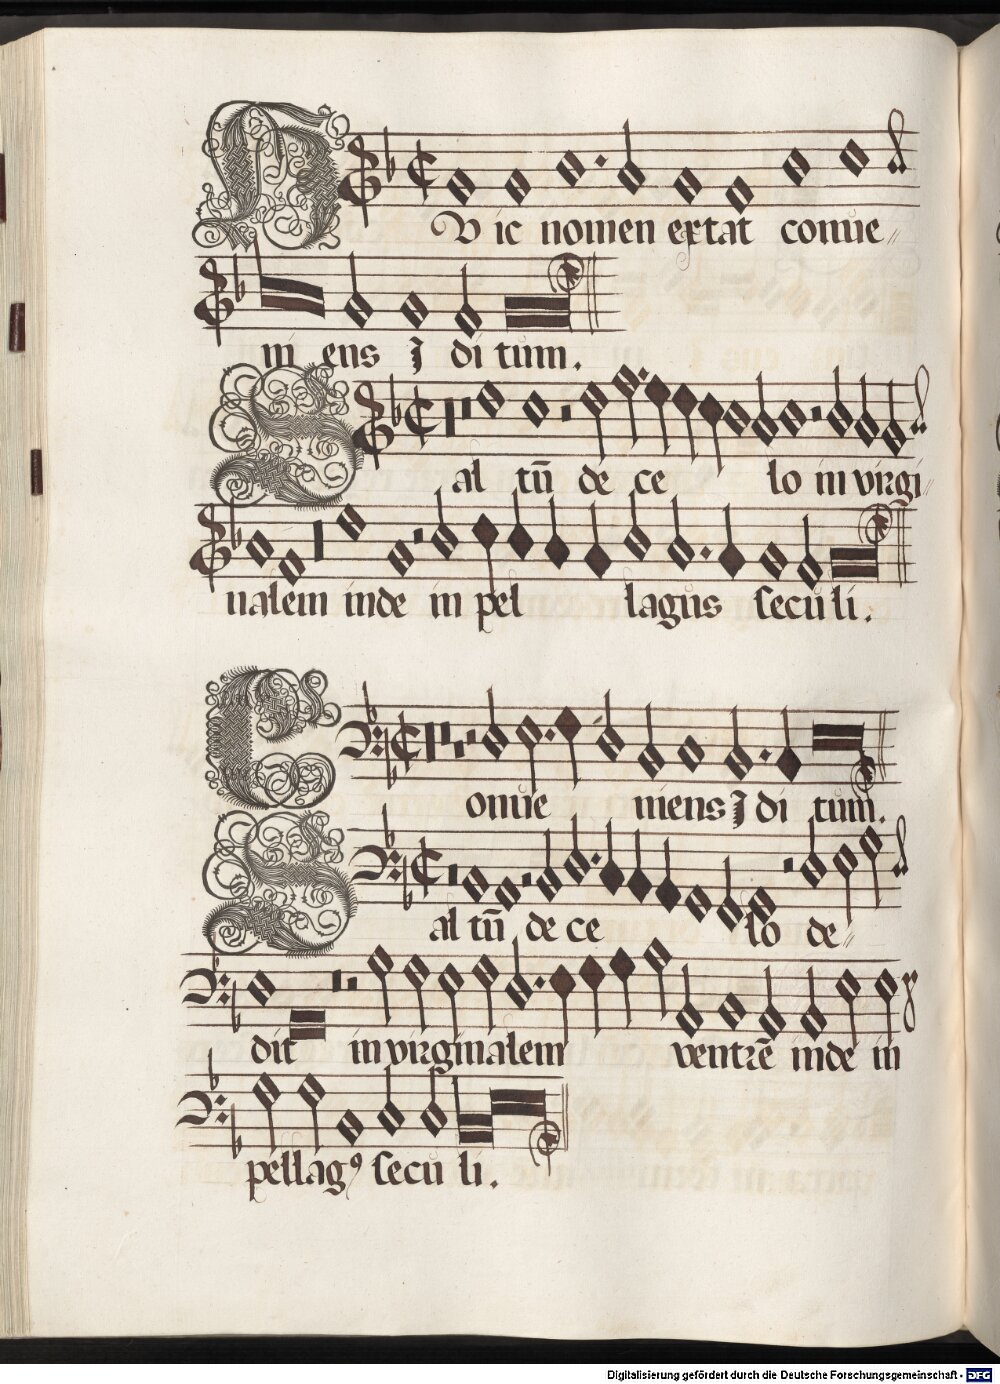 Huic nomen extat conue
ni ens I di tum.
Saltū de ce lo in virgi
nalem inde in pel lagus seculi.
Conue niens I di tum.
Saltū de ce lo de
dit in virginalem ventrē inde in
pellagꝰ secu li.
Digitalisierung gefördert durch die Deutsche Forschungsgemeinschaft - DFG